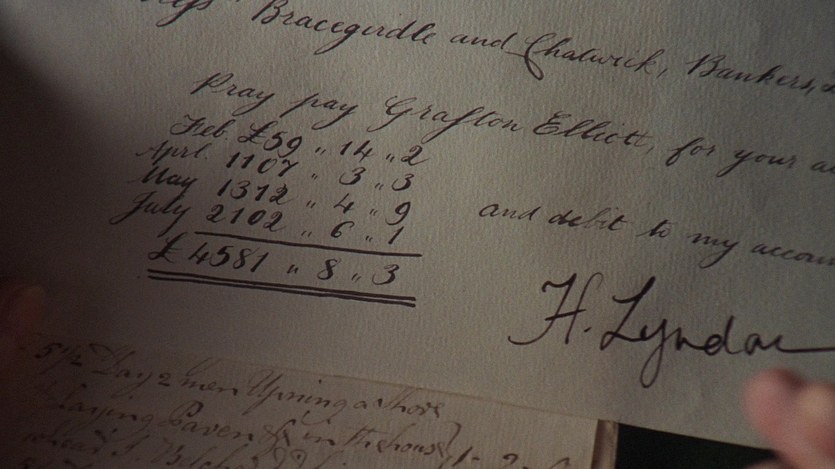 Bracegirdle and Chalwick, Bankers,
Pray pay Grafton Elliott, for your
Feb. £59 " 14 " 2
Aprl. 1107 " 3 " 3
May 1312 " 4 " 9
July 2102 " 6 " 1
and debit to my accoun
£ 4581 " 8 " 3
H. Lyndon
5 1/2 Day 2 men
Laying Paven in the house